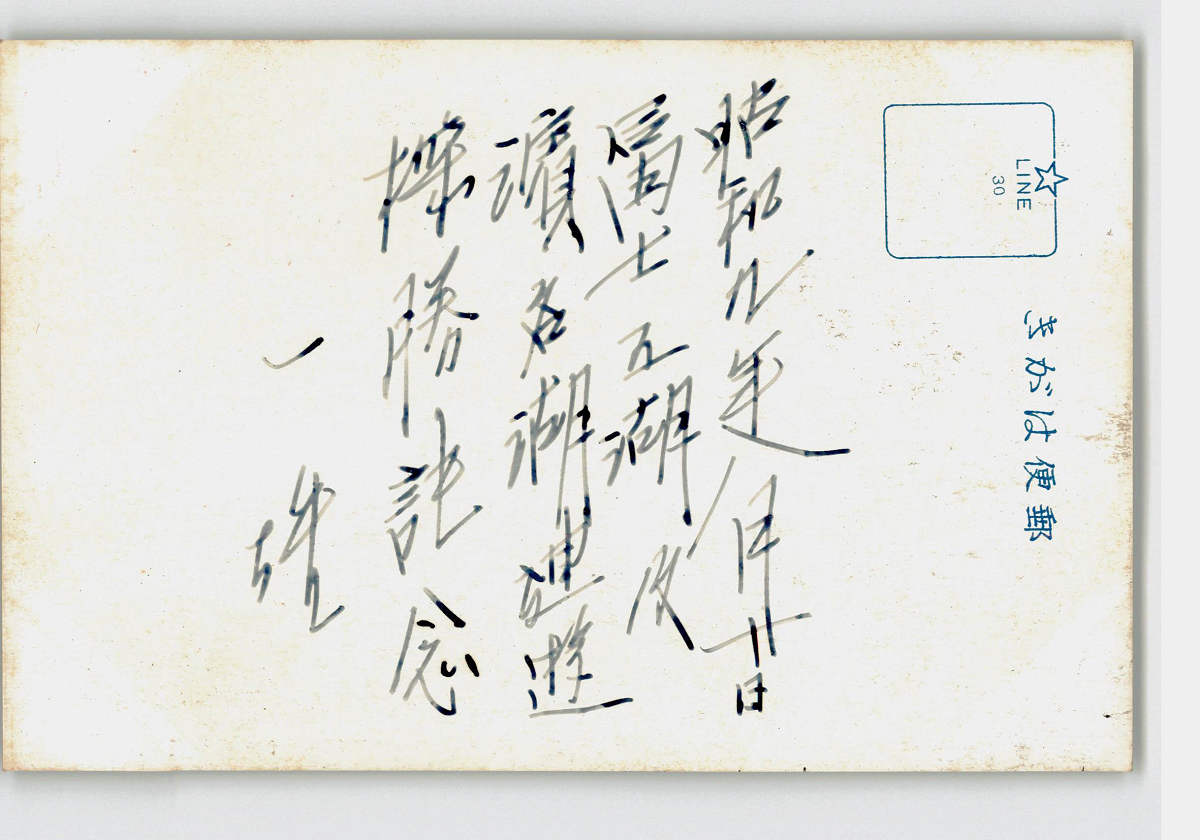 きがは便郵
LINE
30
昭和九年八月廿日
富士五湖及
濱名湖連遊
探勝記念
一雄